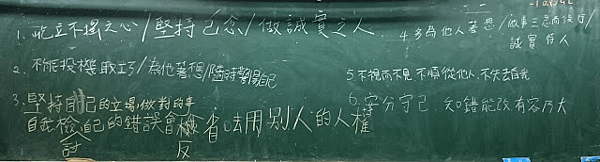 1. 屹立不搖之心/堅持己念/做誠實之人
2. 不能投機取巧/為他著想/隨時觀
3. 堅持自己的立場,做對的事
自我檢討自己的錯誤會檢反省
用別人的人權
4. 多為他人著想/做事三思而後行/
誠實待人
5 不視而不見 不順從他人 不失去自我
6. 安分守己 知錯能改 有容乃大